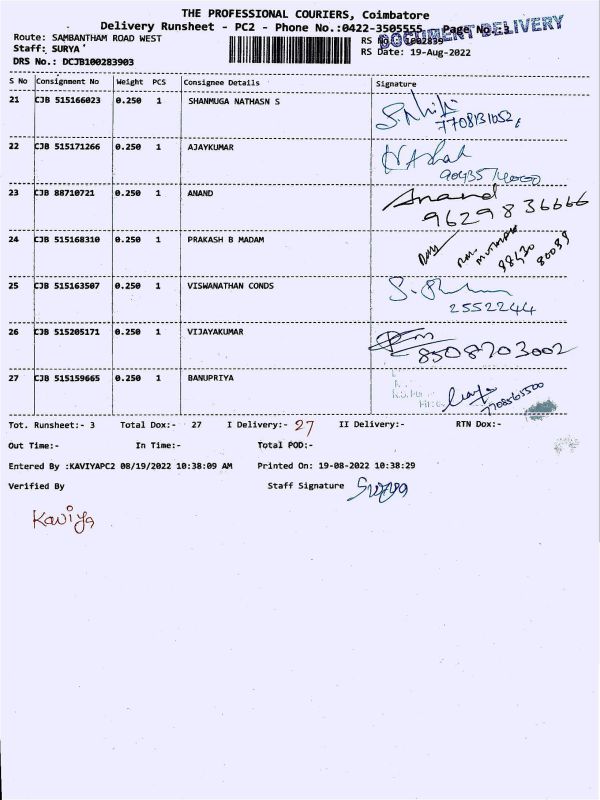 THE PROFESSIONAL COURIERS, Coimbatore
Delivery Runsheet - PC2 - Phone No.:0422-3505555 Page No.:3
DOCUMENT DELIVERY
Route: SAMBANTHAM ROAD WEST
RS No. 1002839
Staff: SURYA
RS Date: 19-Aug-2022
DRS No.: DCJB100283903
S No Consignment No Weight PCS Consignee Details Signature
21 CJB 515166023 0.250 1 SHANMUGA NATHASN S
22 CJB 515171266 0.250 1 AJAYKUMAR
23 CJB 88710721 0.250 1 ANAND Anand
96298 36666
24 CJB 515168310 0.250 1 PRAKASH B MADAM
88430 80039
25 CJB 515163507 0.250 1 VISWANATHAN CONDS
2552244
26 CJB 515205171 0.250 1 VIJAYAKUMAR
8508703002
27 CJB 515159665 0.250 1 BANUPRIYA
7708565500
Tot. Runsheet:- 3 Total Dox:- 27 I Delivery:- 27 II Delivery:- RTN Dox:-
Out Time:- In Time:- Total POD:-
Entered By :KAVIYAPC2 08/19/2022 10:38:09 AM Printed On: 19-08-2022 10:38:29
Verified By Staff Signature Surya
Kaviya